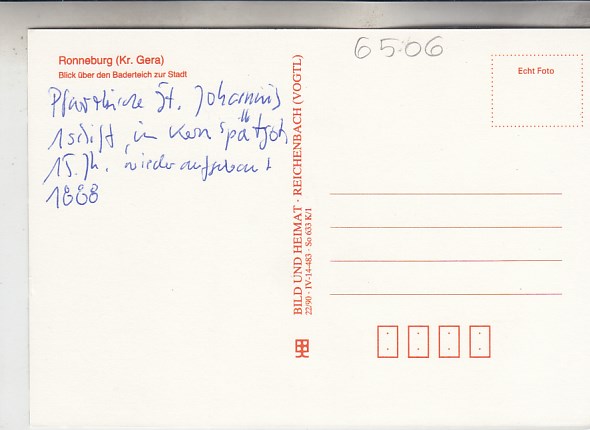 6506
Ronneburg (Kr. Gera)
Blick über den Baderteich zur Stadt
Echt Foto
Pfarrkirche St. Johannis
1schiff, im Kern spätgot
15. Jh. wiederaufgebaut
1888
BILD UND HEIMAT · REICHENBACH (VOGTL)
22/90 · IV-14-483 · So 633 K/1